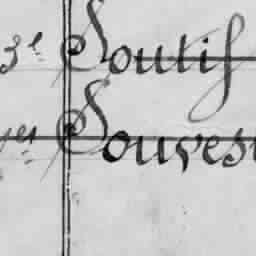 3e Soutif
yes Souves